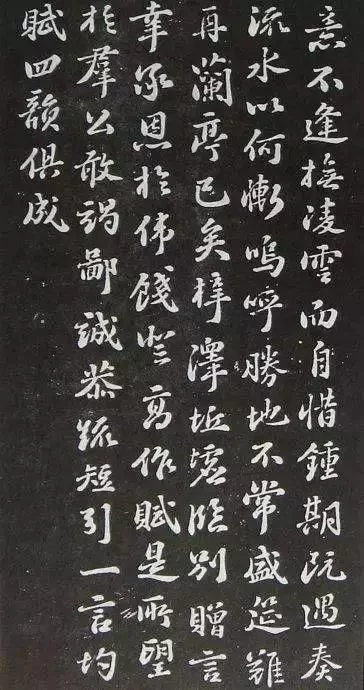 意不逢撫凌雲而自惜鍾期既遇奏
流水以何慚嗚呼勝地不常盛筵難
再蘭亭已矣梓澤坵虛臨別贈言
幸承恩於偉餞登高作賦是所望
於羣公敢竭鄙誠恭疏短引一言均
賦四韻俱成